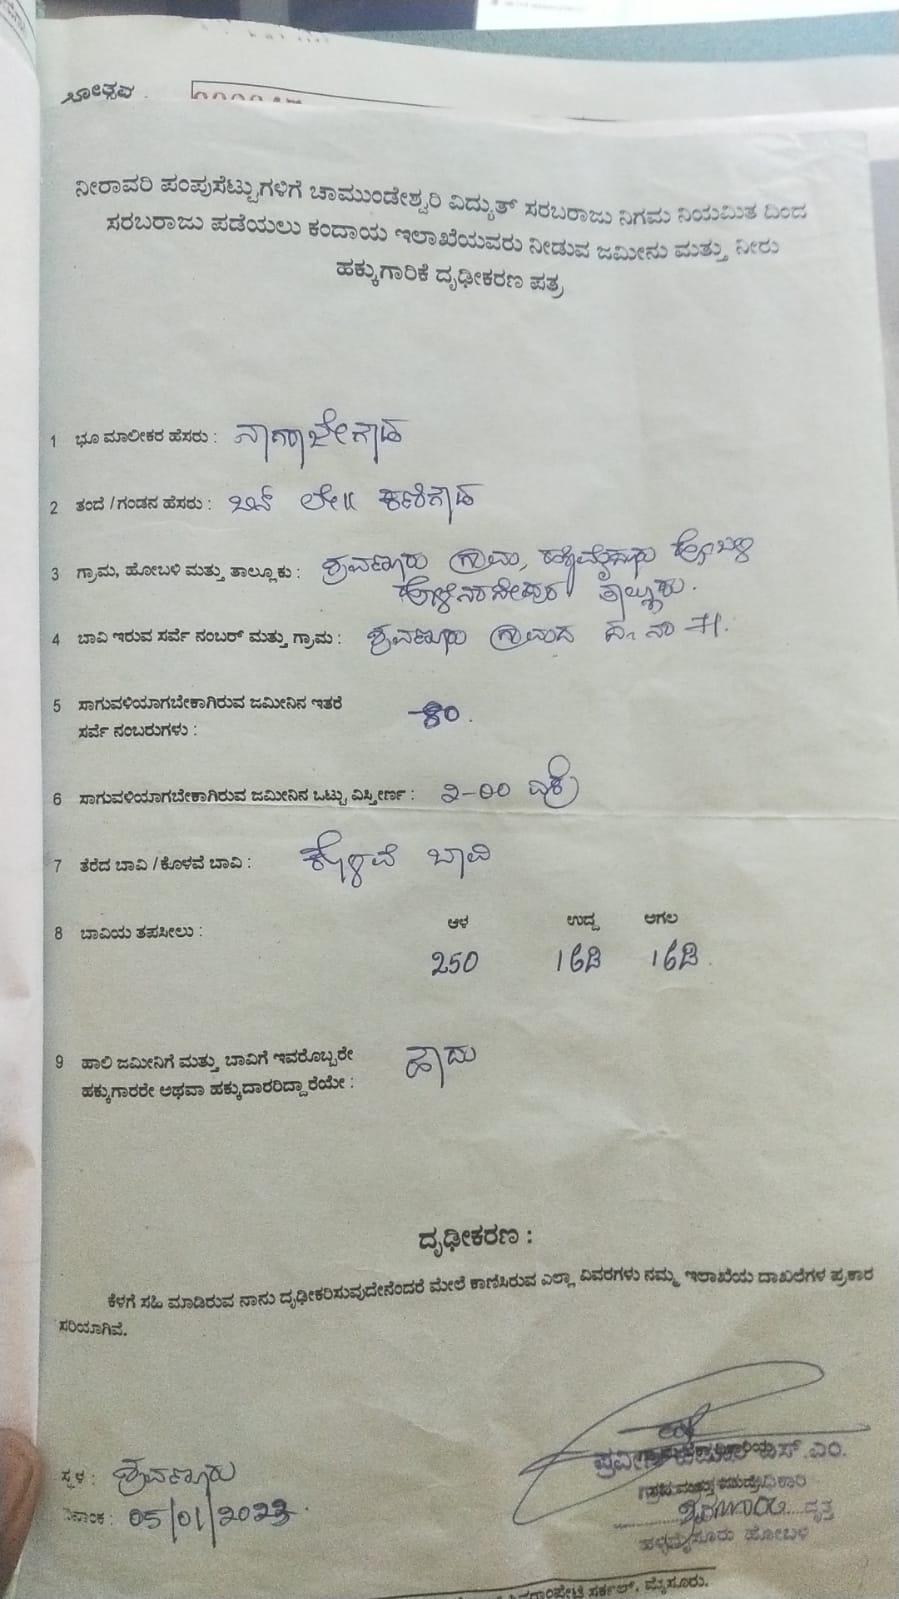 ನೀರಾವರಿ ಪಂಪುಸೆಟ್ಟುಗಳಿಗೆ ಚಾಮುಂಡೇಶ್ವರಿ ವಿದ್ಯುತ್ ಸರಬರಾಜು ನಿಗಮ ನಿಯಮಿತ ದಿಂದ
ಸರಬರಾಜು ಪಡೆಯಲು ಕಂದಾಯ ಇಲಾಖೆಯವರು ನೀಡುವ ಜಮೀನು ಮತ್ತು ನೀರು
ಹಕ್ಕುಗಾರಿಕೆ ದೃಢೀಕರಣ ಪತ್ರ
1 ಭೂ ಮಾಲೀಕರ ಹೆಸರು : ನಾಗರಾಜೇಗೌಡ
2 ತಂದೆ / ಗಂಡನ ಹೆಸರು : ಬಿನ್ ಲೇ॥
3 ಗ್ರಾಮ, ಹೋಬಳಿ ಮತ್ತು ತಾಲ್ಲೂಕು : ಶ್ರವಣೂರು ಗ್ರಾಮ, ಹಳ್ಳಿಮೈಸೂರು ಹೋಬಳಿ
ಹೊಳೆನರಸೀಪುರ ತಾಲ್ಲೂಕು.
4 ಬಾವಿ ಇರುವ ಸರ್ವೆ ನಂಬರ್ ಮತ್ತು ಗ್ರಾಮ : ಶ್ರವಣೂರು ಗ್ರಾಮದ
5 ಸಾಗುವಳಿಯಾಗಬೇಕಾಗಿರುವ ಜಮೀನಿನ ಇತರೆ
ಸರ್ವೆ ನಂಬರುಗಳು :
6 ಸಾಗುವಳಿಯಾಗಬೇಕಾಗಿರುವ ಜಮೀನಿನ ಒಟ್ಟು ವಿಸ್ತೀರ್ಣ : ೨-೦೦ ಎಕ್ರೆ
7 ತೆರೆದ ಬಾವಿ / ಕೊಳವೆ ಬಾವಿ : ಕೊಳವೆ ಬಾವಿ
ಆಳ ಉದ್ದ ಅಗಲ
8 ಬಾವಿಯ ತಪಸೀಲು :
250 16ಡಿ 16ಡಿ
9 ಹಾಲಿ ಜಮೀನಿಗೆ ಮತ್ತು ಬಾವಿಗೆ ಇವರೊಬ್ಬರೇ
ಹಕ್ಕುಗಾರರೇ ಅಥವಾ ಹಕ್ಕುದಾರರಿದ್ದಾರೆಯೇ : ಹೌದು
ದೃಢೀಕರಣ :
ಕೆಳಗೆ ಸಹಿ ಮಾಡಿರುವ ನಾನು ದೃಢೀಕರಿಸುವುದೇನೆಂದರೆ ಮೇಲೆ ಕಾಣಿಸಿರುವ ಎಲ್ಲಾ ವಿವರಗಳು ನಮ್ಮ ಇಲಾಖೆಯ ದಾಖಲೆಗಳ ಪ್ರಕಾರ
ಸರಿಯಾಗಿವೆ.
ಸ್ಥಳ : ಶ್ರವಣೂರು
ದಿನಾಂಕ : 05/01/2023.
ಎಸ್.ಎಂ.
ವೃತ್ತ
ಹಳ್ಳಿಮೈಸೂರು ಹೋಬಳಿ
ಸರ್ಕಲ್, ಮೈಸೂರು.